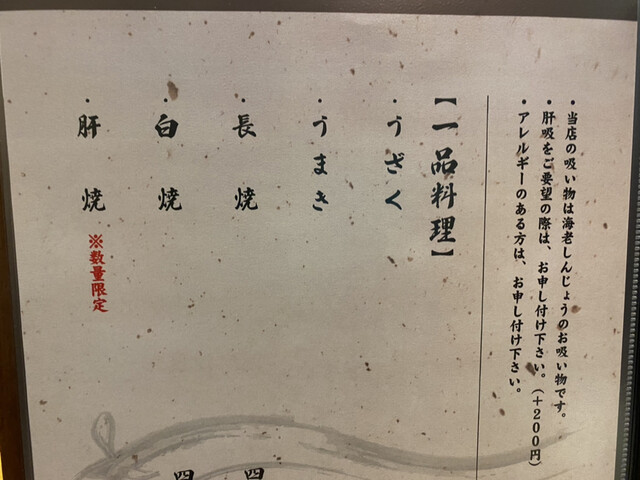 ・当店の吸い物は海老しんじょうのお吸い物です。
・肝吸をご要望の際は、お申し付け下さい。(+200円)
・アレルギーのある方は、お申し付け下さい。
【一品料理】
・うざく
・うまき
・長焼
・白焼
・肝焼 ※数量限定
四
四